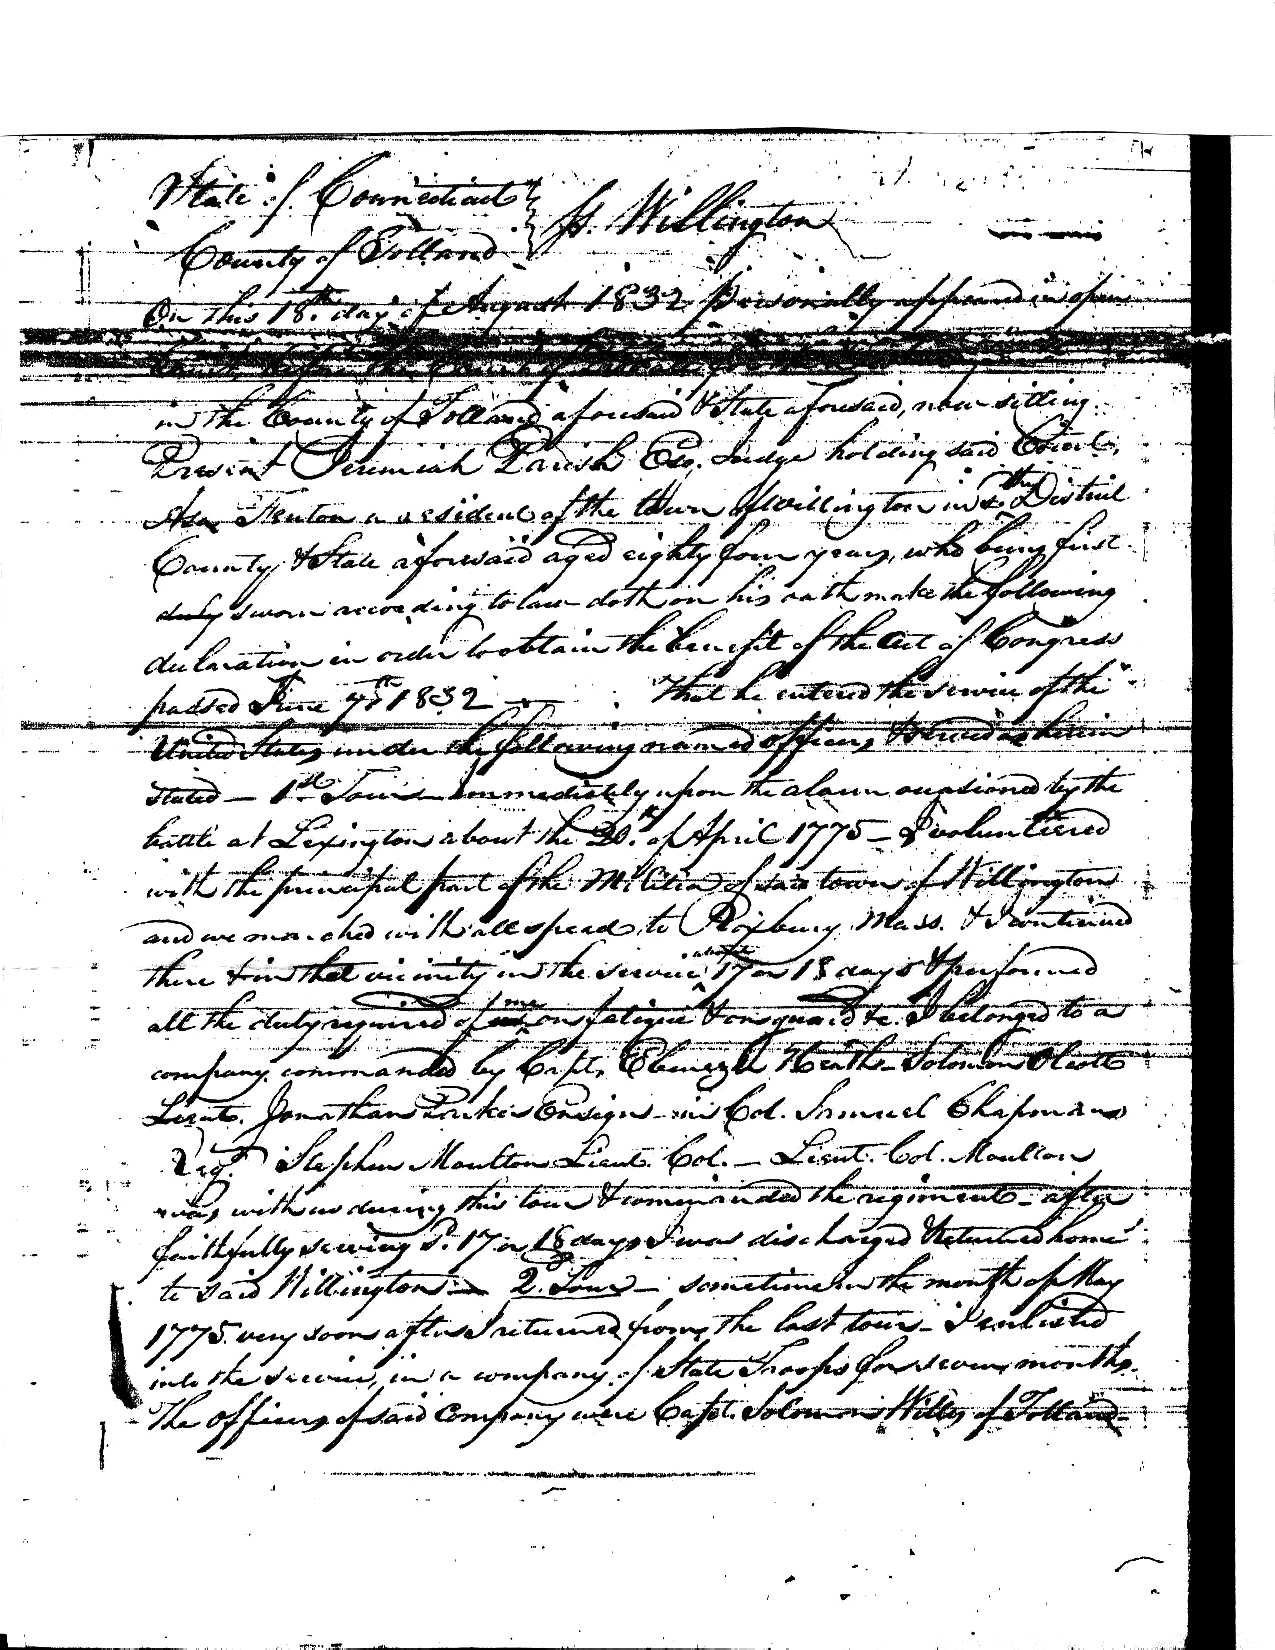 State of Connecticut } ss. Willington
County of Tolland
On this 18th. day of August 1832 personally appeared in open
Court, before the Court of Probate for the
in the County of Tolland aforesaid & State aforesaid, now sitting
Present Jeremiah Parish Esq. Judge holding said Court,
Asa Fenton a resident of the town of Willington in sd. District
County, & State aforesaid aged eighty four years, who being first
duly sworn according to law doth on his oath make the following
declaration in order to obtain the benefit of the Act of Congress
passed June 7th 1832 — That he entered the service of the
United States under the following named officers & served as herein
stated — 1st Tour — Immediately upon the alarm occasioned by the
battle at Lexington about the 20th. of April 1775 — I volunteered
with the principal part of the Militia of said town of Willington
and we marched with all speed, to Roxbury Mass. & I continued
there & in that vicinity in the service about 17 or 18 days & performed
all the duty required of me on fatigue & on guard &c. I belonged to a
company commanded by Capt. Ebenezer Heath — Solomon Olcott
Lieut. Jonathan Parker Ensign — in Col. Samuel Chapmans
Regt. Stephen Moulton Lieut. Col. — Lieut. Col. Moulton
was with us during this tour & commanded the regiment — after
faithfully serving sd. 17 or 18 days I was discharged & returned home
to said Willington — 2d. Tour — sometime in the month of May
1775 very soon after I returned from the last tour — I enlisted
into the service, in a company of State Troops for seven months.
The officers of said Company were Capt. Solomon Willes of Tolland —